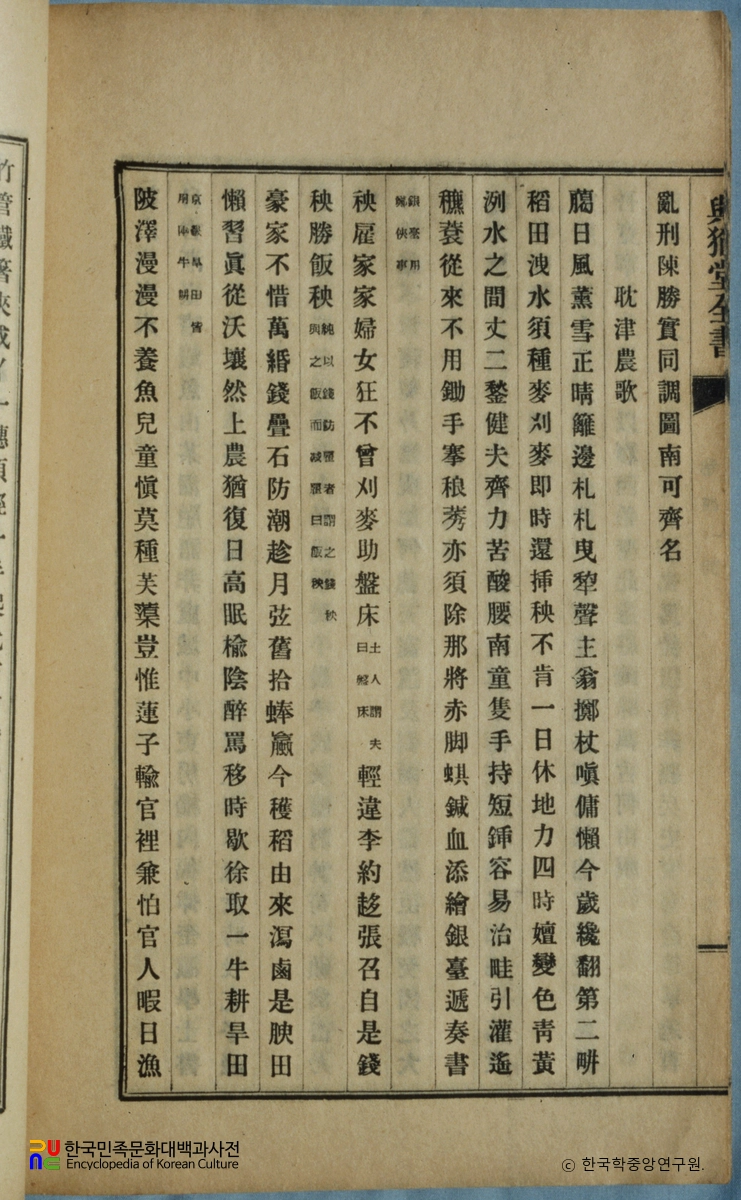 與猶堂全書
亂刑陳勝實同調圖南可齊名
耽津農歌
臈日風薰雪正晴籬邊札札曳犂聲主翁擲杖嗔傭懶今歲纔翻第二畊
稻田洩水須種麥刈麥即時還揷秧不肯一日休地力四時嬗變色靑黃
洌水之間丈二鍫健夫齊力苦酸腰南童隻手持短鍤容易治畦引灌遙
穮蔉從來不用鋤手搴稂莠亦須除那將赤脚蜞鍼血添繪銀臺遞奏書
銀臺用
鄭俠事
秧雇家家婦女狂不曾刈麥助盤床土人謂夫曰盤床輕違李約趍張召自是錢
秧勝飯秧純以錢防雇者謂之錢秧與之飯而減雇曰飯秧
豪家不惜萬緡錢疊石防潮趁月弦舊拾蜯蠃今穫稻由來瀉鹵是腴田
懶習眞從沃壤然上農猶復日高眠楡陰醉罵移時歇徐取一牛耕旱田
京畿旱田皆
用兩牛耕
陂澤漫漫不養魚兒童愼莫種芙蕖豈惟蓮子輸官裡兼怕官人暇日漁
竹管鐵箸夾成丫一穗須經一手
한국민족문화대백과사전
Encyclopedia of Korean Culture
© 한국학중앙연구원.